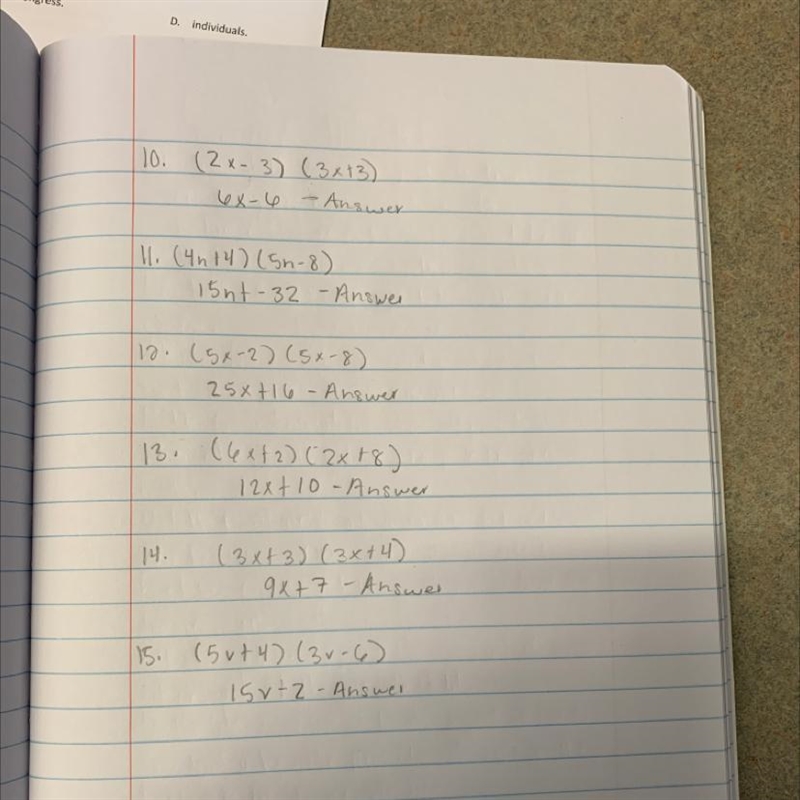 ngress.
D. individuals.
10. (2x-3) (3x+3)
6x-6 - Answer
11. (4n+4)(5n-8)
15n+-32 - Answer
12. (5x-2)(5x-8)
25x+16 - Answer
13. (6x+2)(2x+8)
12x+10 - Answer
14. (3x+3)(3x+4)
9x+7 - Answer
15. (5v+4)(3v-6)
15v-2 - Answer